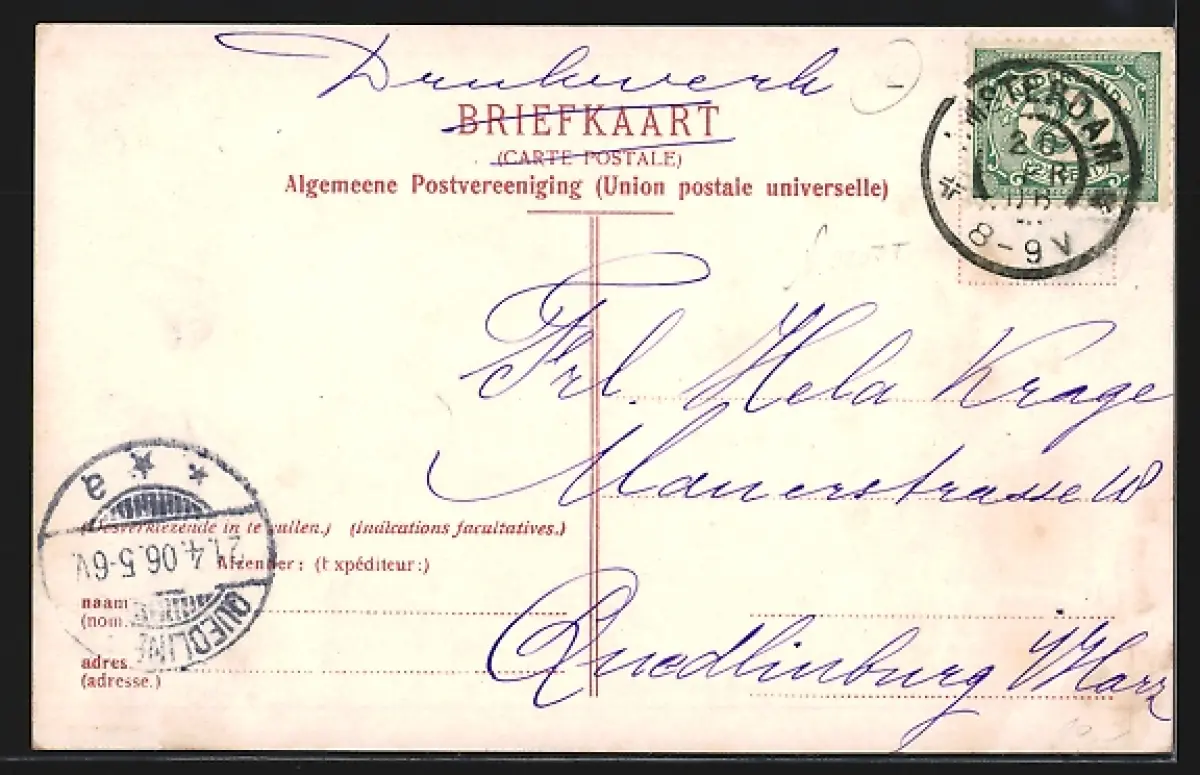 Drukwerk
BRIEFKAART
(CARTE POSTALE)
Algemeene Postvereeniging (Union postale universelle)
AMSTERDAM
20
8-9V
Frl. Hela Krage
Mauerstrasse 18
Quedlinburg /Harz
(Desverkiezende in te vullen.) (indications facultatives.)
Afzender: (Expéditeur:)
naam
(nom.
adres.
(adresse.)
a
21.4.06.5-6V.
QUEDLINB